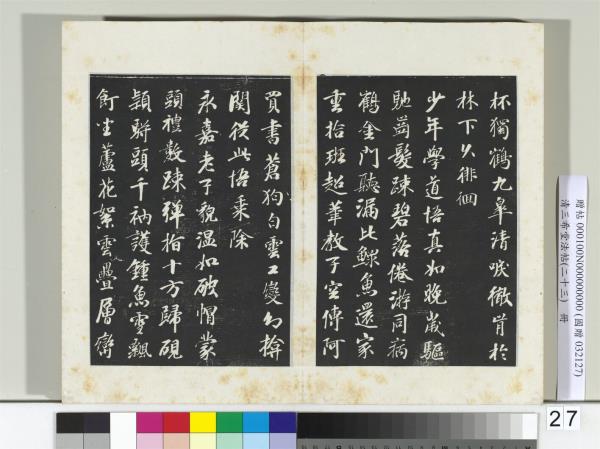 杯獨鶴九皋清唳徹宵於
林下久徘徊
少年學道悟真如晚歲驅
馳齒髮疎碧落倦游同病
鶴金門聽漏比鰥魚還家
重拾班超筆教子空傳阿
買書蒼狗白雲工變幻
閱從此悟乘除
永嘉老子貌温如破帽蒙
頭禮數疎彈指十方歸硯
頴騈頭千衲護鍾魚雪飄
飣坐蘆花絮雲疊層巒
贈帖 000100N000000000 (國贈 032127)
清三希堂法帖(二十三) 冊
27